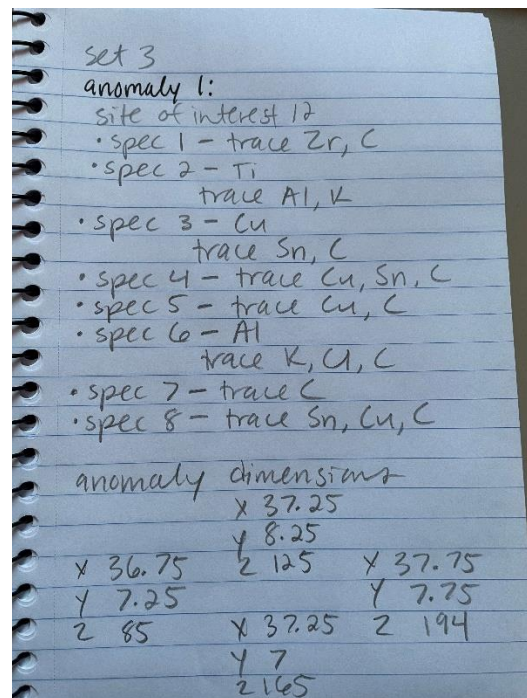 set 3
anomaly 1:
site of interest 12
• spec 1 - trace Zr, C
• spec 2 - Ti
trace Al, K
• spec 3 - Cu
trace Sn, C
• spec 4 - trace Cu, Sn, C
• spec 5 - trace Cu, C
• spec 6 - Al
trace K, Cl, C
• spec 7 - trace C
• spec 8 - trace Sn, Cu, C
anomaly dimensions
x 37.25
y 8.25
x 36.75 z 125 x 37.75
y 7.25 y 7.75
z 85 x 37.25 z 194
y 7
z 165